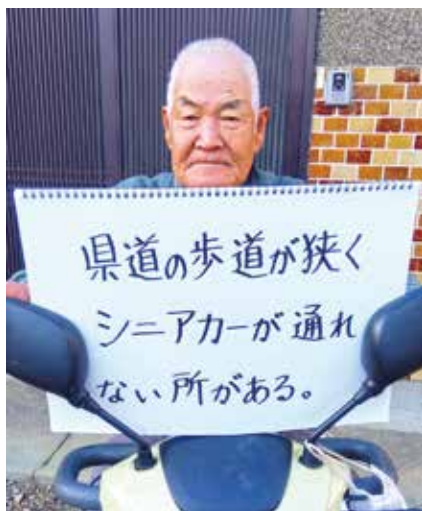 県道の歩道が狭く
シニアカーが通れ
ない所がある。